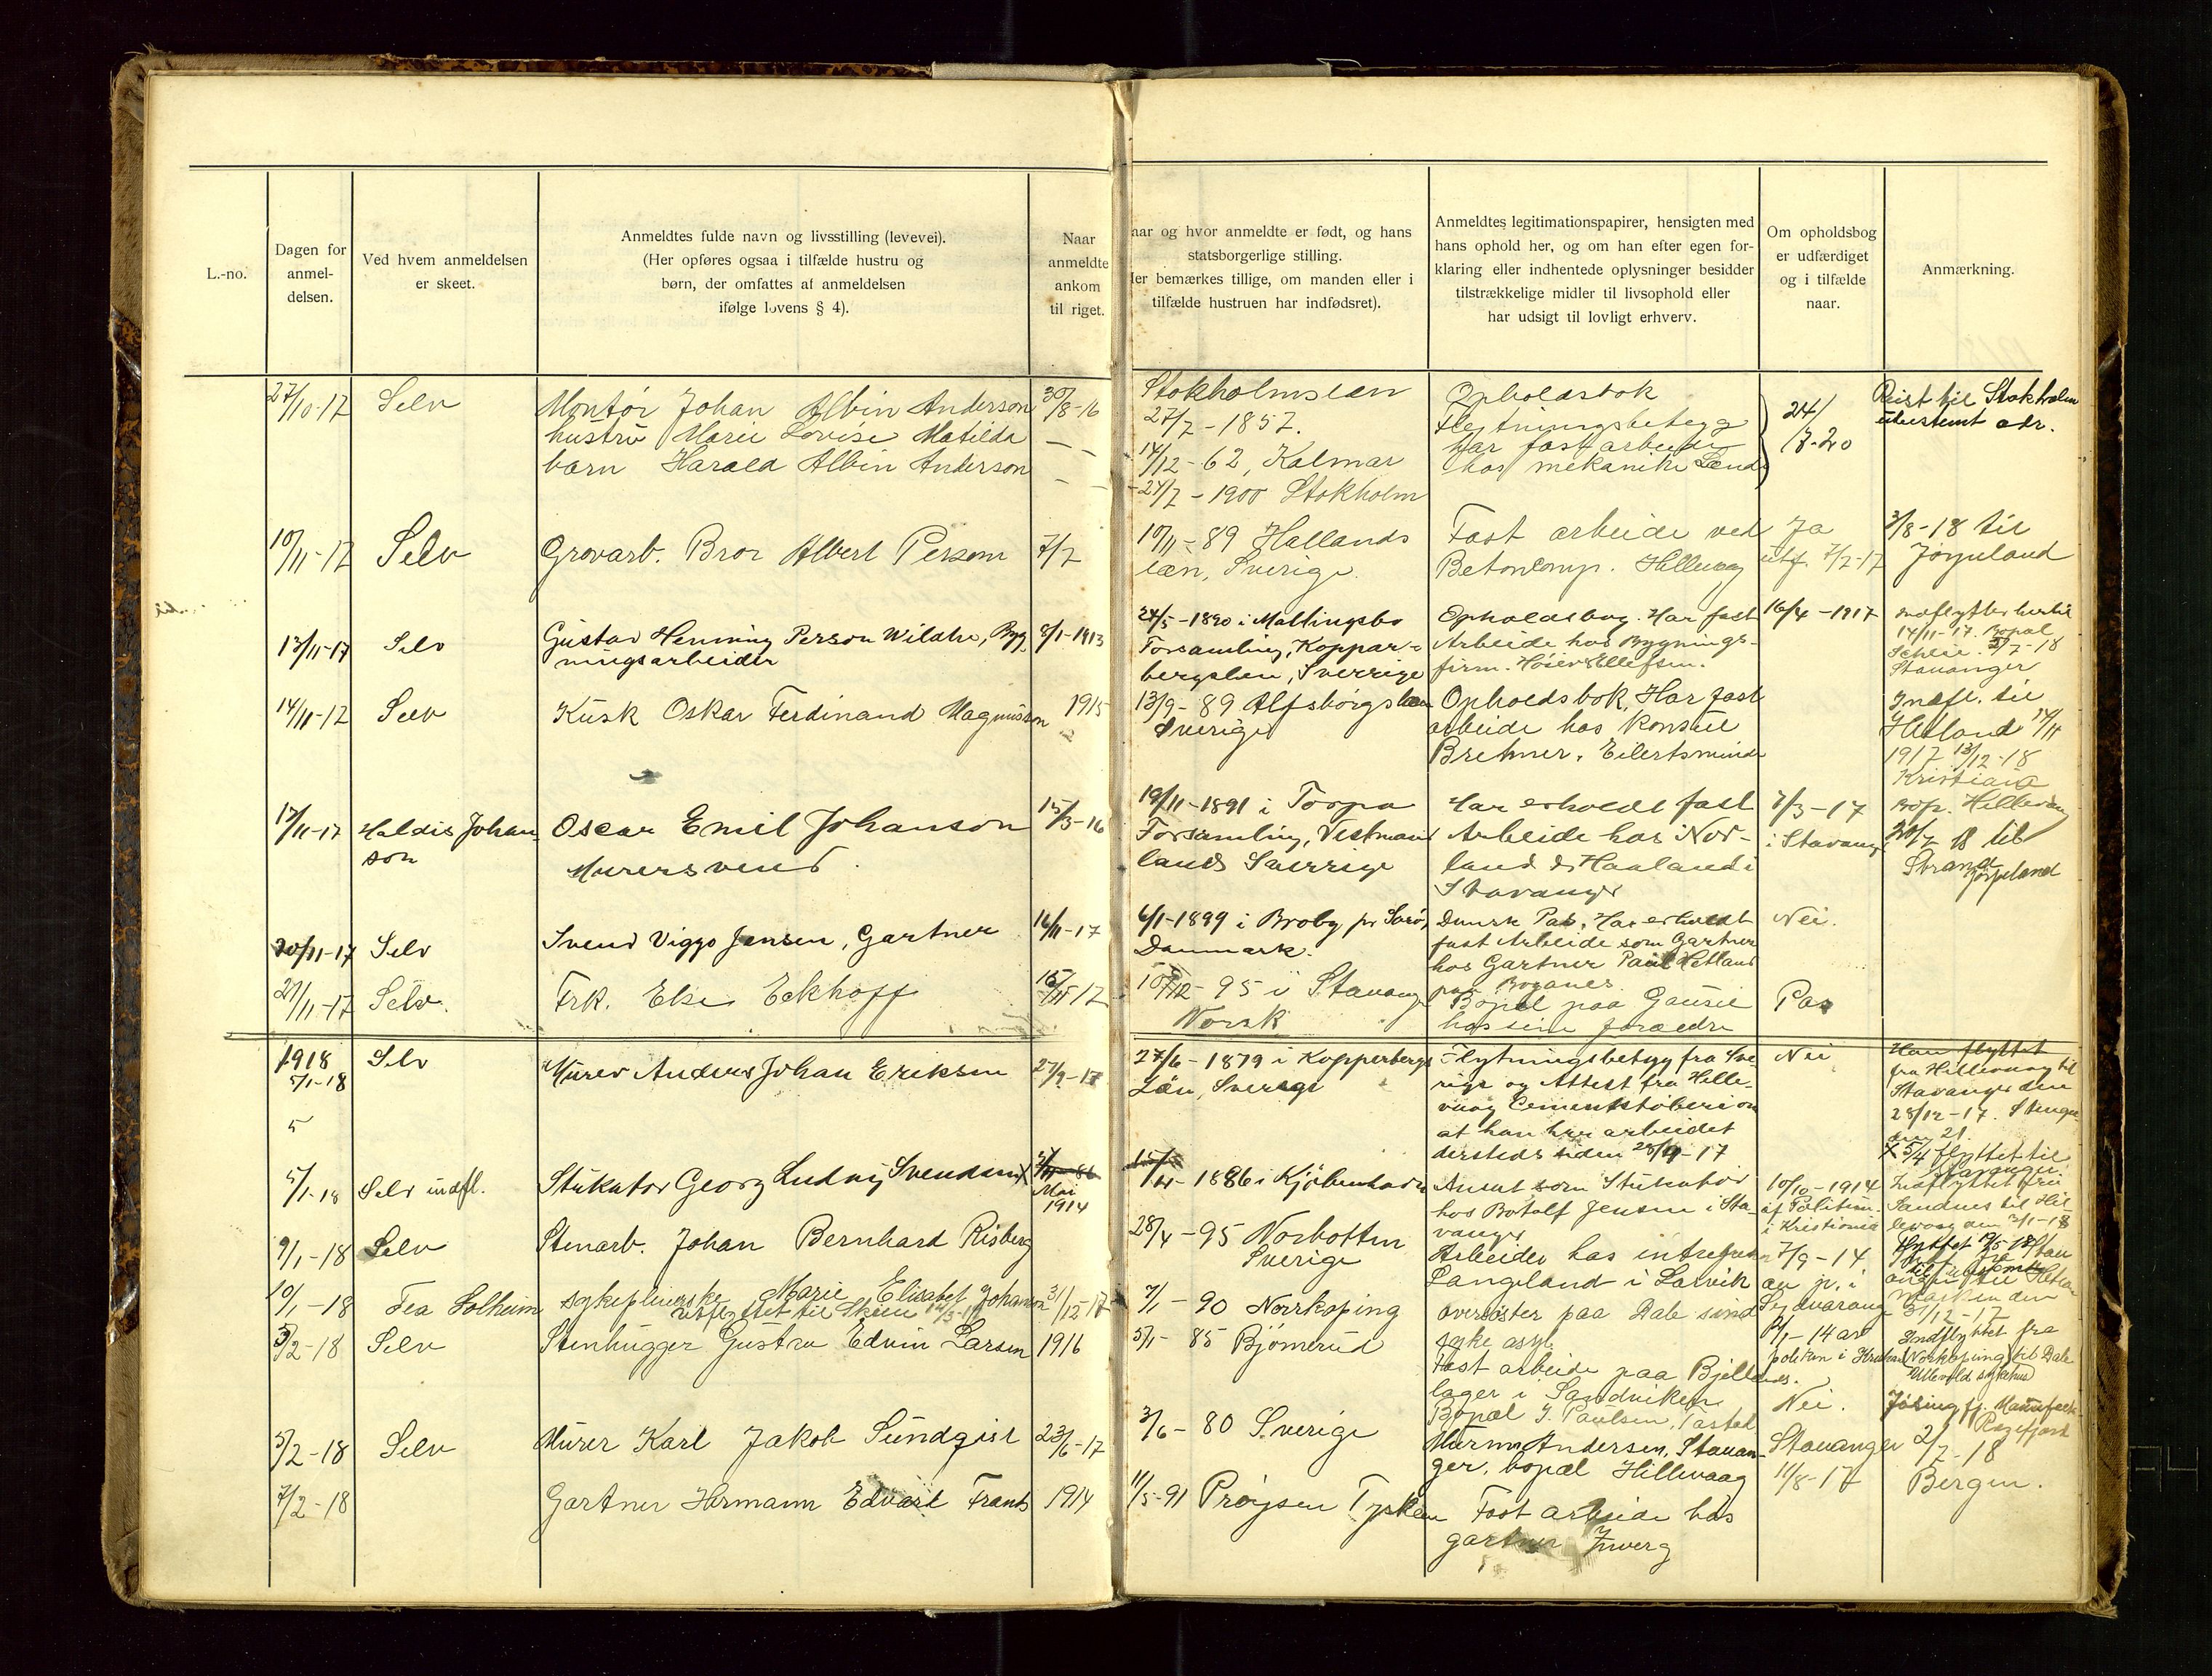 L.-no.
Dagen for
anmel-
delsen.
Ved hvem anmeldelsen
er skeet.
Anmeldtes fulde navn og livsstilling (levevei).
(Her opføres ogsaa i tilfælde hustru og
børn, der omfattes af anmeldelsen
ifølge lovens § 4).
Naar
anmeldte
ankom
til riget.
aar og hvor anmeldte er født, og hans
statsborgerlige stilling.
er bemærkes tillige, om manden eller i
tilfælde hustruen har indfødsret).
Anmeldtes legitimationspapirer, hensigten med
hans ophold her, og om han efter egen for-
klaring eller indhentede oplysninger besidder
tilstrækkelige midler til livsophold eller
har udsigt til lovligt erhverv.
Om opholdsbog
er udfærdiget
og i tilfælde
naar.
Anmærkning.
27/10-17 Selv Montør Johan Albin Anderson 30/8-16
hustru Marie Lovise Matilda —
barn Harald Albin Anderson — —
Stokholmslæn
27/7-1857.
14/12-62, Kalmar
24/7-1900 Stokholm
Opholdsbok
Flytningsbetegg
har fast arbeide
hos mekanike
24/
7-20
Reist til Stokholm
ubestemt adr.
10/11-17 Selv Grovarb. Bror Albert Person 7/7
10/11-89 Hallands
læn, Sverige.
Fast arbeide ved
Betoncomp. Hillevag
Ja
utf. 7/7-17
3/8-18 til
Jørpeland
13/11-17 Selv Gustav Henning Person Byg-
ningsarbeider
8/1-1913
24/5-1890 i Mallingsbo
Forsamling, Koppar-
bergslen, Sverrige
Opholdsbog. Har fast
Arbeide hos Bygnings-
firm. Høier & Ellefsen.
16/4-1917
indflytter hertil
14/11-17. Bopæl
5/7-18
Stavanger
14/11-17 Selv Kusk Oskar Ferdinand Magnusson 1915
13/9-89 Alfsborgslæn
Sverige
Opholdsbok, Har fast
arbeide hos Konsul
Brehmer, Eilertsminde
Indfl. til
Hetland 14/11
1917 13/12-18
Kristiania
17/11-17 Haldis Johan-
son
Oscar Emil Johanson
Murersvend.
15/3-16
19/11-1891 i Torpa
Forsamling, Vestman
lands Sverrige
Har erholdt fast
Arbeide hos Nor-
land & Haaland i
Stavanger
7/3-17
i Stavanger
Bop. Hillevaag
18 til
Strand
Jørpeland
20/11-17 Selv Svend Viggo Jensen, Gartner 16/11-17
6/1-1899 i Broby pr Sorø,
Danmark.
Dansk Pas. Har erholdt
fast Arbeide som Gartner
hos Gartner Paul Hetland
paa Boganes
Nei.
21/11-17 Selv. Frk. Else Eckhoff 15/11-17
95 i Stavanger
Norsk
Bopæl paa Gausel
hos sine forældre
Pas
1918
5/1-18 Selv Murer Anders Johan Eriksen 27/9-17
5
27/6-1879 i Kopperbergs
Län, Sverige
Flytningsbetyg fra Sve-
rige og Attest fra Hille-
vaag Cementstøberi om
at han har arbeidet
dersteds siden 28/9-17
Nei
Han flyttet
fra Hillevaag til
Stavanger den
28/12-17.
21.
5/4 flyttet til
Stavanger.
5/1-18 Selv indfl. Stukatør Georg Ludvig Svendsen
Mai
1914
1886 i Kjøbenhavn
Ansat som Stukatør
hos Botolf Jensen i Sta-
vanger
10/10-1914
af Politim.
i Kristiania
Indflyttet fra
Sandnes til Hil-
levaag den 3/1-18
9/1-18 Selv Stenarb. Johan Bernhard Risberg
28/4-95 Norbotten
Sverige
Arbeider hos
Langeland i Larvik
7/9-14
av pr. i
Sydvaranger
31/12-17
10/1-18 Tea Solheim sykepleierske Marie Elisabet Johanson 31/12-17
utflyttet til Skien
7/1-90 Norrkøping
oversøster paa Dale sind
syke asyl.
Indflyttet fra
Norkøping til Dale
5/2-18 Selv Stenhugger Gustav Edvin Larsen 1916
5/1-85 Bjømerud
Fast arbeide paa
lager i Sandviken
Bopæl J. Paulsen, Tasted
Nei.
5/2-18 Selv Murer Karl Jakob Sundqist 23/6-17
3/6-80 Sverige
Murm Andersen, Stavan-
ger, bopæl Hillevaag
Stavanger
11/8-17
2/7-18
Bergen.
7/2-18 Gartner Hermann Edvart Frants 1914
11/5-91 Prøysen Tyskland
Fast arbeide hos
gartner